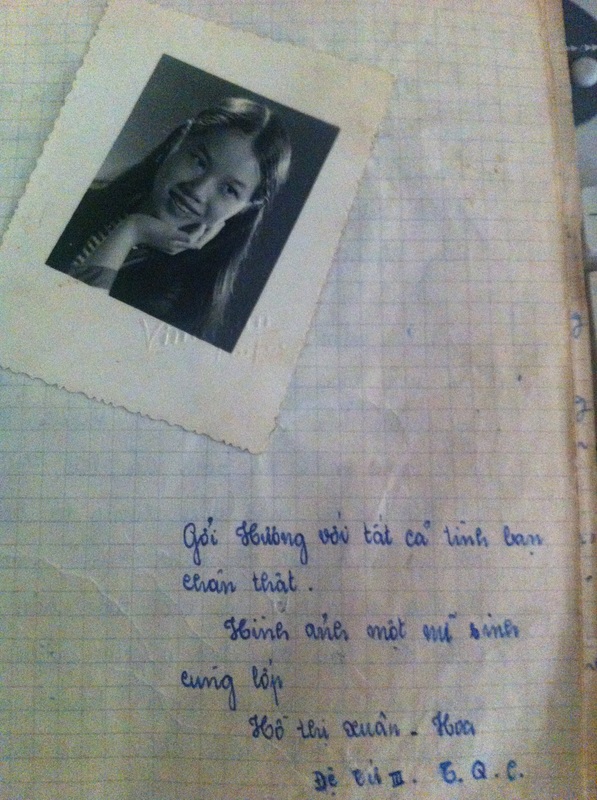 Gởi Hường với tất cả tình bạn
chân thật.
Hình ảnh một nữ sinh
cùng lớp
Hồ thị xuân - Hoa
Đệ tứ III. T.Q.C.